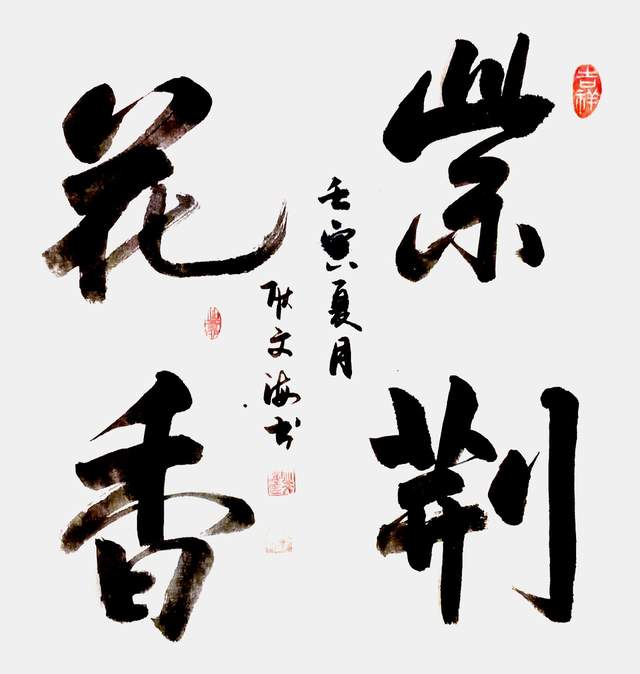 吉祥
紫荆
花香
壬寅夏月
耿文海书